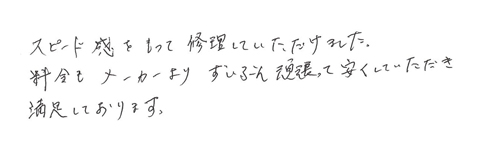 スピード感をもって修理していただけました。
料金もメーカーより ずいぶん頑張って安くしていただき
満足しております。